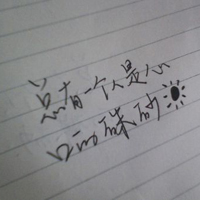 总有一个人是心
口的硃砂